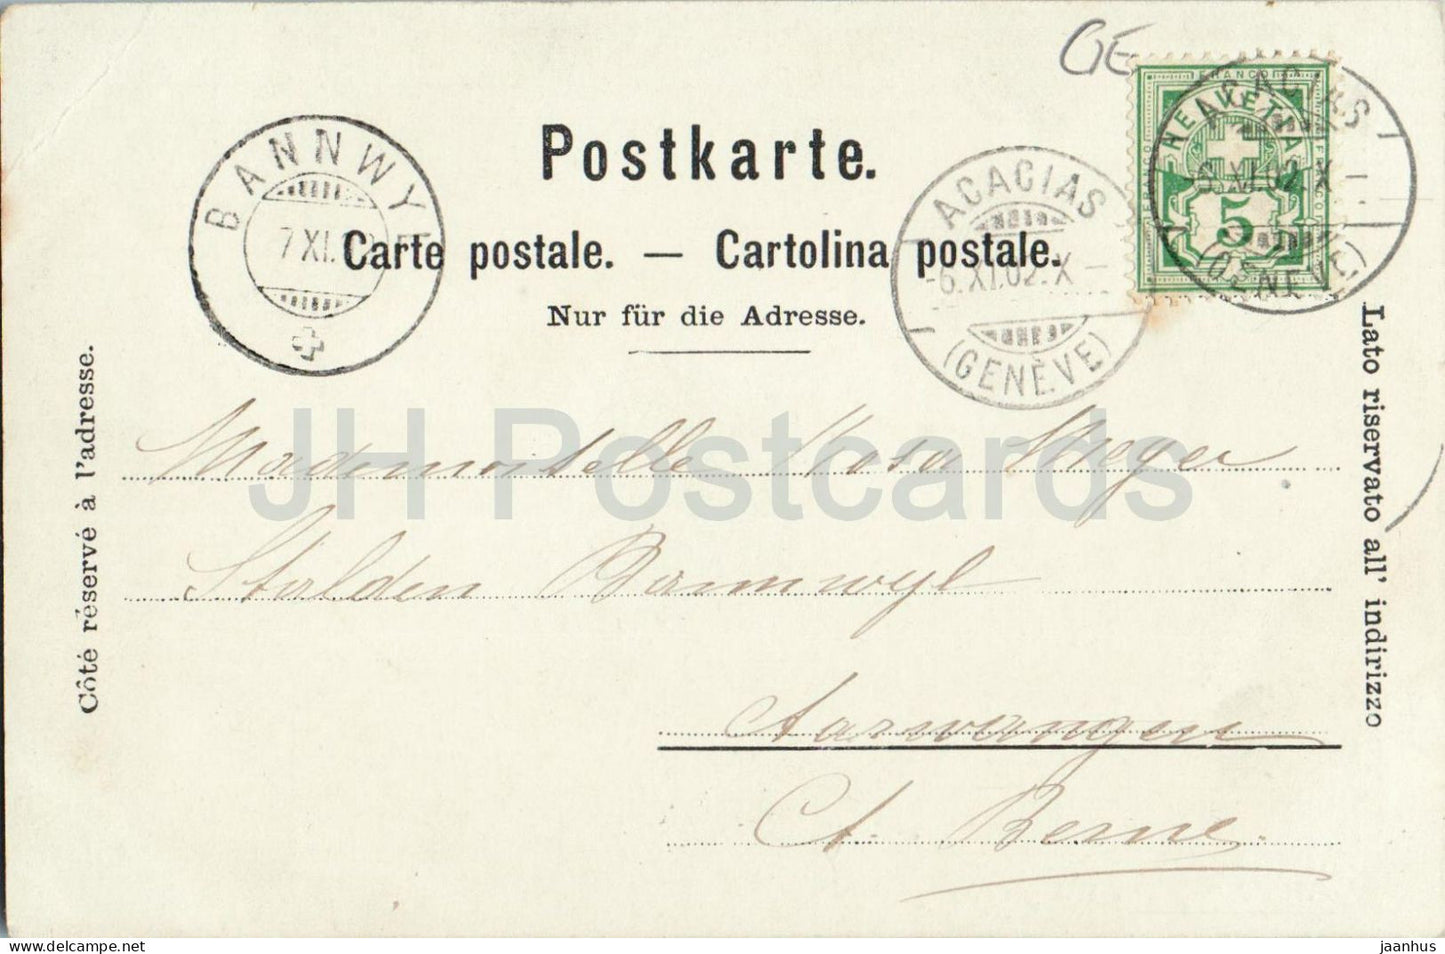 GE
FRANCO
HELVETIA
5
ACACIAS
-6.XI.02.X-
(GENÈVE)
BANNWYL
7 XI.
Postkarte.
ACACIAS
-6.XI.02.X-
(GENÈVE)
Carte postale. — Cartolina postale.
Nur für die Adresse.
Côté réservé à l'adresse.
Lato riservato all' indirizzo
JH Postcards
Mademoiselle Rosa Meyer
Stalden Bannwyl
Aarwangen
Ct. Berne.
www.delcampe.net
jaanhus